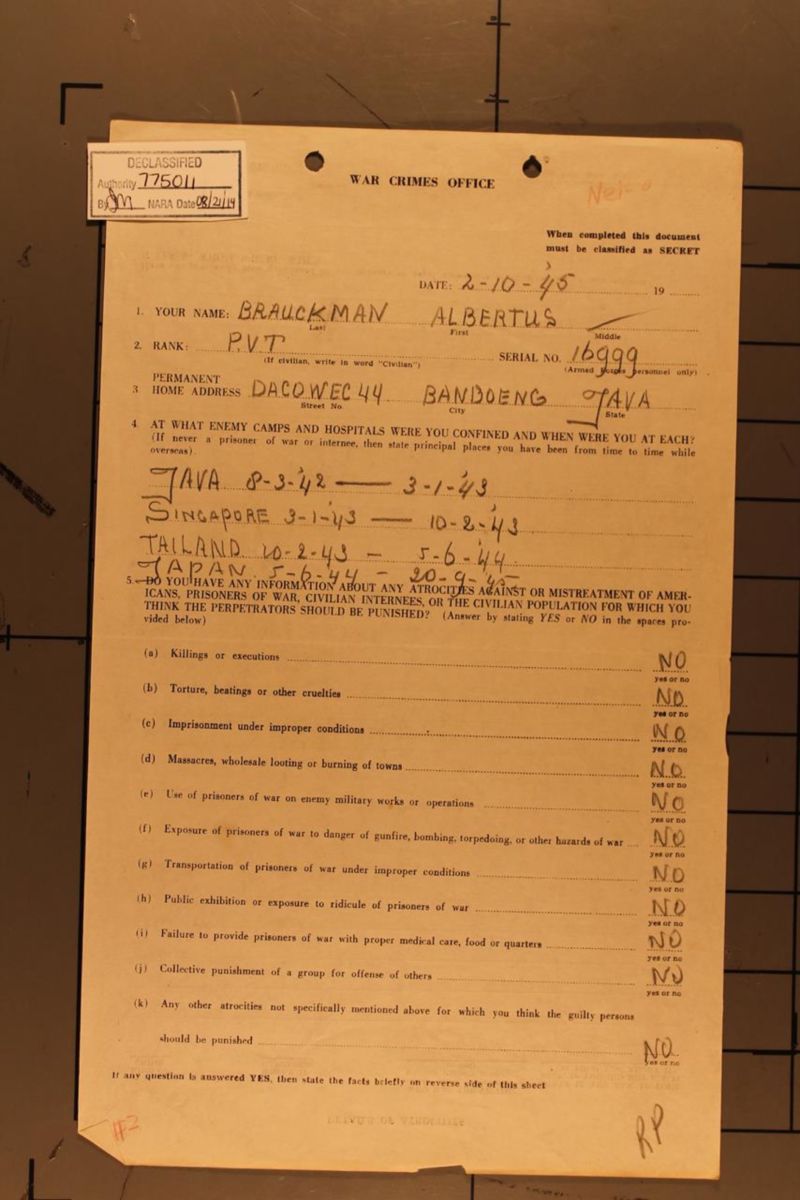 DECLASSIFIED
Authority 775011
By JM NARA Date 08/21/14
WAR CRIMES OFFICE
When completed this document
must be classified as SECRET
DATE: 2-10-45 19
1. YOUR NAME: BRAUCKMAN ALBERTUS
Last First Middle
2. RANK: PVT SERIAL NO. 16999
(If civilian, write in word "Civilian") (Armed Forces Personnel only)
3 PERMANENT
HOME ADDRESS DACOWEC 44 BANDOENG JAVA
Street No City State
4. AT WHAT ENEMY CAMPS AND HOSPITALS WERE YOU CONFINED AND WHEN WERE YOU AT EACH?
(If never a prisoner of war or internee, then state principal places you have been from time to time while
overseas).
JAVA 8-3-42 — 3-1-43
SINGAPORE 3-1-43 — 10-2-43
TAILAND 10-2-43 - 5-6-44
JAPAN 5-6-44 - 20-9-45
5. DO YOU HAVE ANY INFORMATION ABOUT ANY ATROCITIES AGAINST OR MISTREATMENT OF AMER-
ICANS, PRISONERS OF WAR, CIVILIAN INTERNEES, OR THE CIVILIAN POPULATION FOR WHICH YOU
THINK THE PERPETRATORS SHOULD BE PUNISHED? (Answer by stating YES or NO in the spaces pro-
vided below)
(a) Killings or executions NO
yes or no
(b) Torture, beatings or other cruelties NO
yes or no
(c) Imprisonment under improper conditions NO
yes or no
(d) Massacres, wholesale looting or burning of towns NO
yes or no
(e) Use of prisoners of war on enemy military works or operations NO
yes or no
(f) Exposure of prisoners of war to danger of gunfire, bombing, torpedoing, or other hazards of war NO
yes or no
(g) Transportation of prisoners of war under improper conditions NO
yes or no
(h) Public exhibition or exposure to ridicule of prisoners of war NO
yes or no
(i) Failure to provide prisoners of war with proper medical care, food or quarters NO
yes or no
(j) Collective punishment of a group for offense of others NO
yes or no
(k) Any other atrocities not specifically mentioned above for which you think the guilty persons
should be punished NO
yes or no
If any question is answered YES, then state the facts briefly on reverse side of this sheet
#2
RP